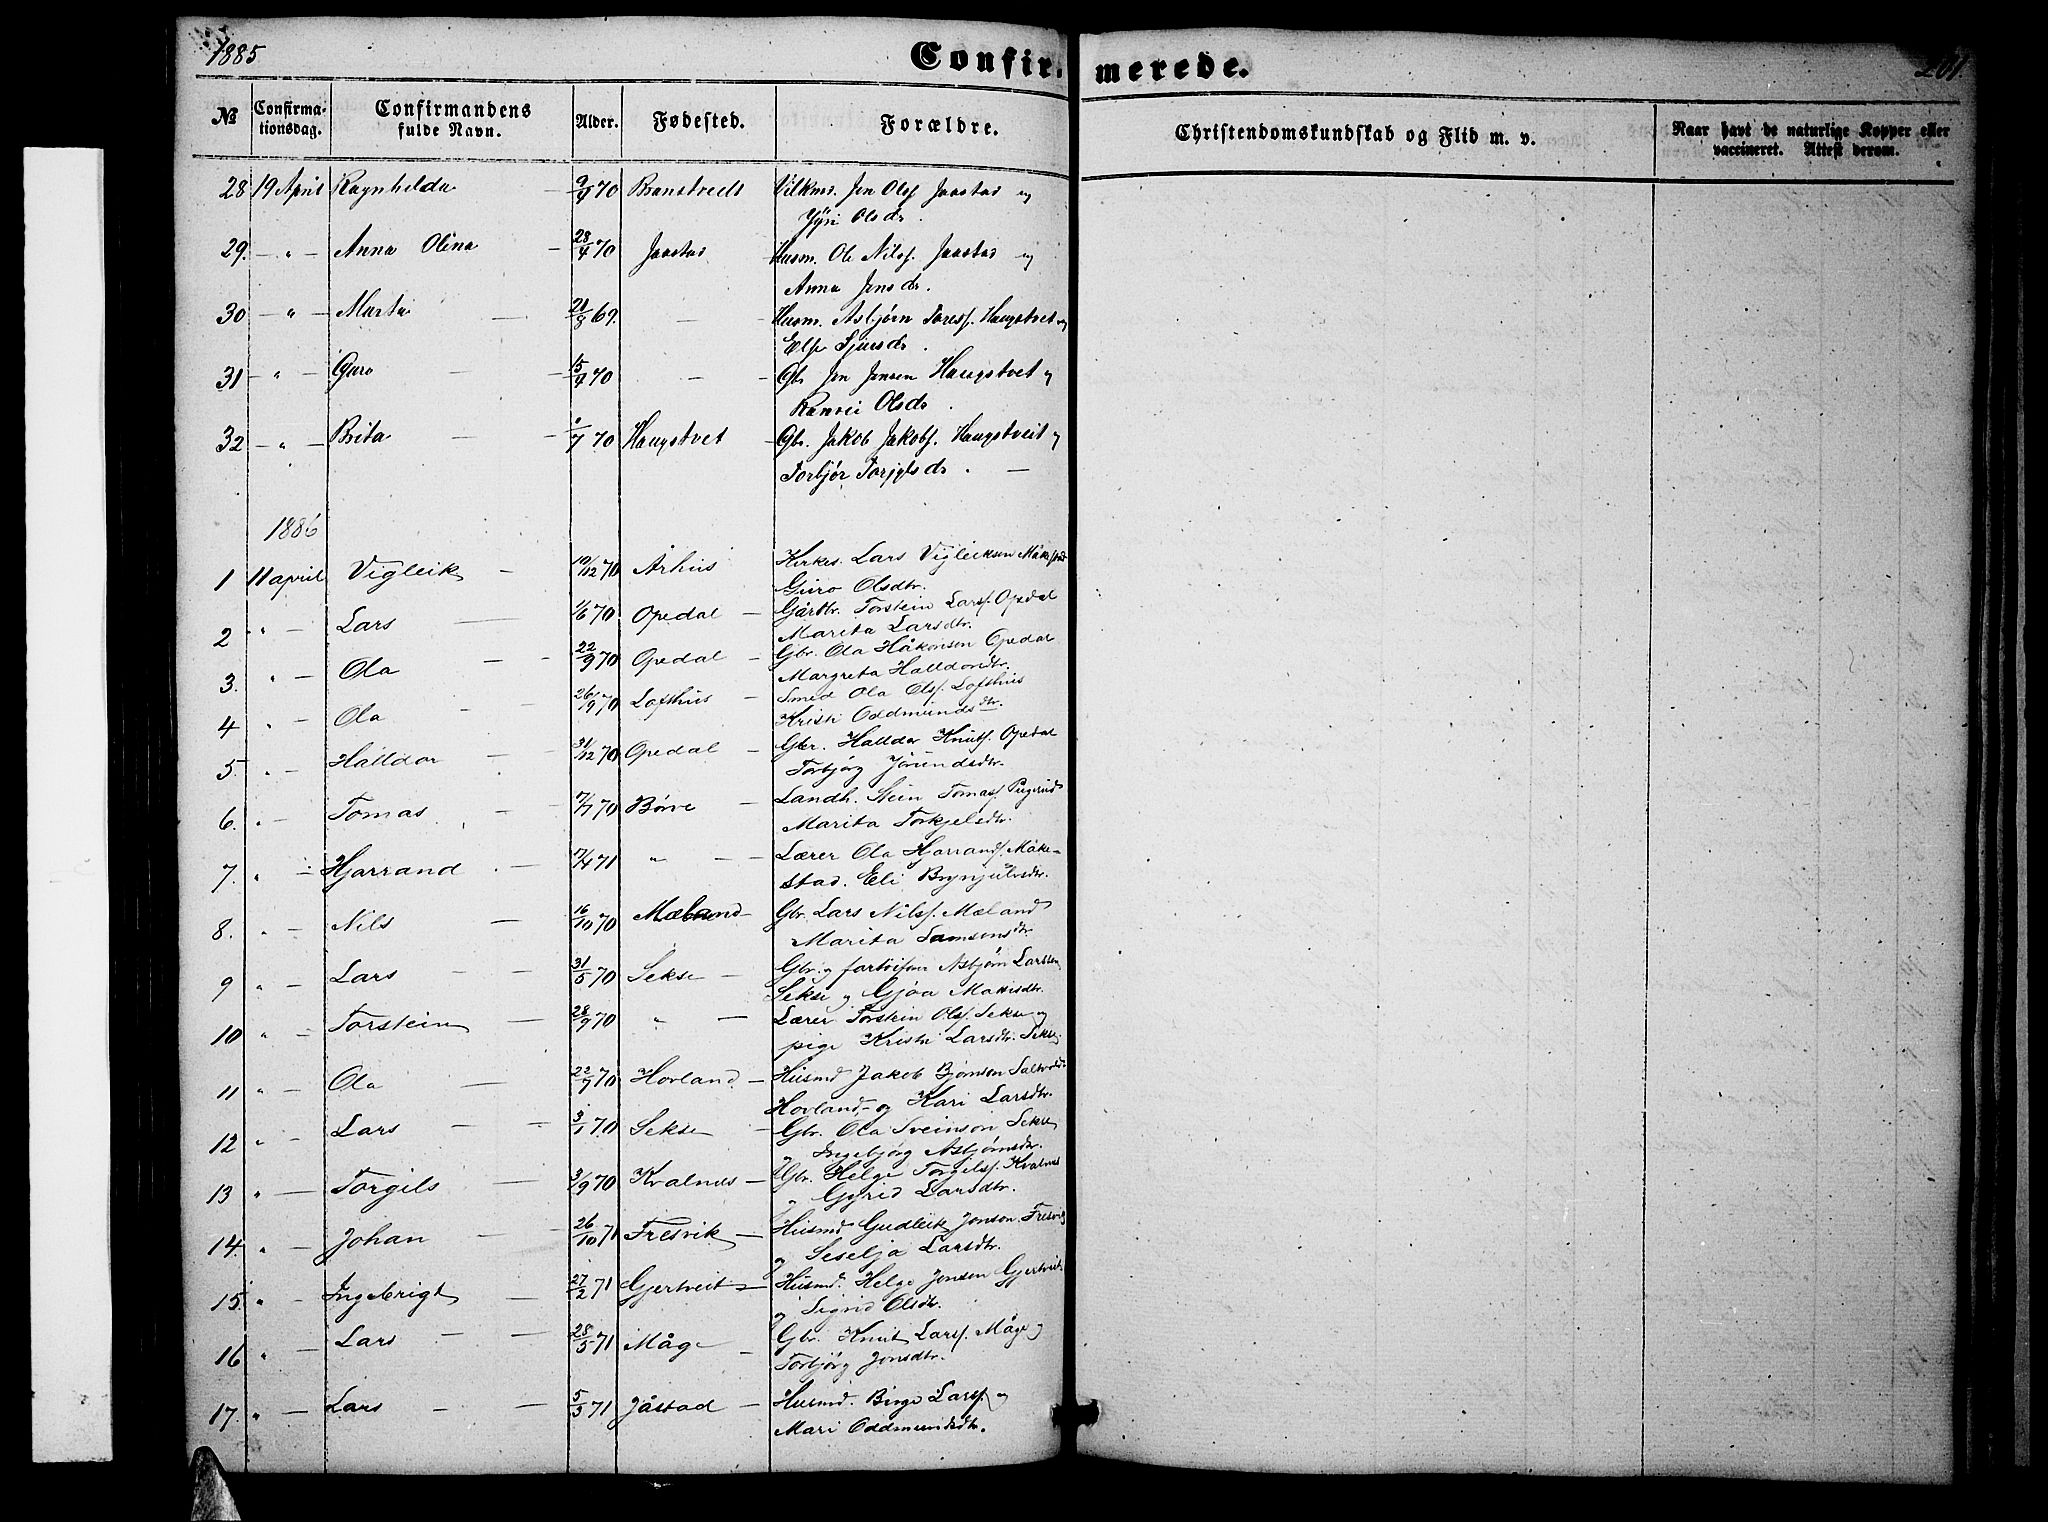 1885 Confirmerede. 201.
№ Confirmationsdag. Confirmandens fulde Navn. Alder. Fødested. Forældre. Christendomskundskab og Flid m. v. Naar havt de naturlige Kopper eller vaccineret. Attest derom.
28 19 April Ragnhilda 9/4 70 Jon Olsf. Jaastad og
Olsdr.
29. - " - Anna Olina - 28/4 70 Jaastad - Husm. Ole Nilsf. Jaastad og
Anna Jonsdr.
30 - " - Marta - 21/8 69. - Husm. Asbjørn Haugstvet og
Sjursdr.
31 - " - Guro - 15/4 70 - Gbr. Jon Jonsen Haugstvet og
Ranvei Olsdr.
32 - " - Brita - /7 70 Haugstvet - Gbr. Jakob Jakobf. Haugstveit og
Torbjør Torgilsdr.
1886
1 11 april Vigleik - 10/12 70 Århus Kirkes. Lars Vigleiksen Måkestad
Guro Olsdtr.
2 " - Lars - 1/6 70 Opedal - Torstein Larsf. Opedal
Marita Larsdtr.
3. " - Ola - 22/9 70 Opedal - Gbr. Ola Håkonsen Opedal
Margreta Halldorsdtr.
4 " - Ola - 26/9 70 Lofthus - Smed Ola Olsf. Lofthus
Kristi Oddmundsdtr.
5. " - Halldor - 31/12 70 Opedal - Gbr. Halldor Knutsf. Opedal
Torbjørg Jørundsdtr.
6. " - Tomas - 7/7 70 Børve - Landh. Stein Tomasf.
Marita Torkjelsdtr.
7. " - Hjarrand - 17/4 71 " - Lærer Ola Hjarrandf. Måke-
stad. Eli Brynjulvsdtr.
8. " - Nils - 16/10 70 Mæland - Gbr. Lars Nilsf. Mæland
Marita Samsonsdtr.
9 " - Lars - 31/5 70 Sekse - Gbr. og Asbjørn Larssen
Sekse og Gjøa
10 " - Torstein - 28/9 70 " - Lærer Torstein Olsf. Sekse og
pige Kristi Larsdtr. Sekse.
11 " - Ola - 22/7 70 Hovland - Husmd Jakob Bjørnson
Hovland og Kari Larsdtr.
12 " - Lars - 3/1 70 Sekse - Gbr. Ola Sveinson Sekse
og Ingebjørg Asbjørnsdtr.
13 " - Torgils - 3/9 70 Kvalnes - Gbr. Helge Torgilsf. Kvalnes
og Gyrid Larsdtr.
14. " - Johan - 26/10 71 Fresvik - Husmd Gudleik Jonson Fresvik
og Seselja Larsdtr.
15. " - Ingebrigt - 27/2 71 Gjertveit - Husmd. Helge Jonsen Gjertveit
og Sigrid Olsdtr.
16 " Lars - 28/5 71 Måge - Gbr. Knut Larsf. Måge og
Torbjørg Jonsdtr.
17. " - Lars - 5/3 71 Jåstad - Husmd. Birge Larsf. og
Mari Oddmundsdtr.